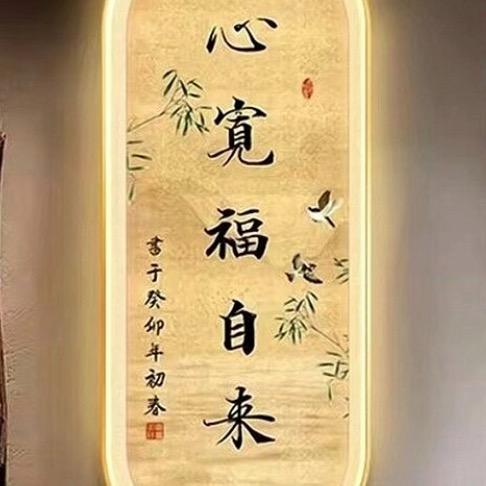 心寬福自来
書于癸卯年初春